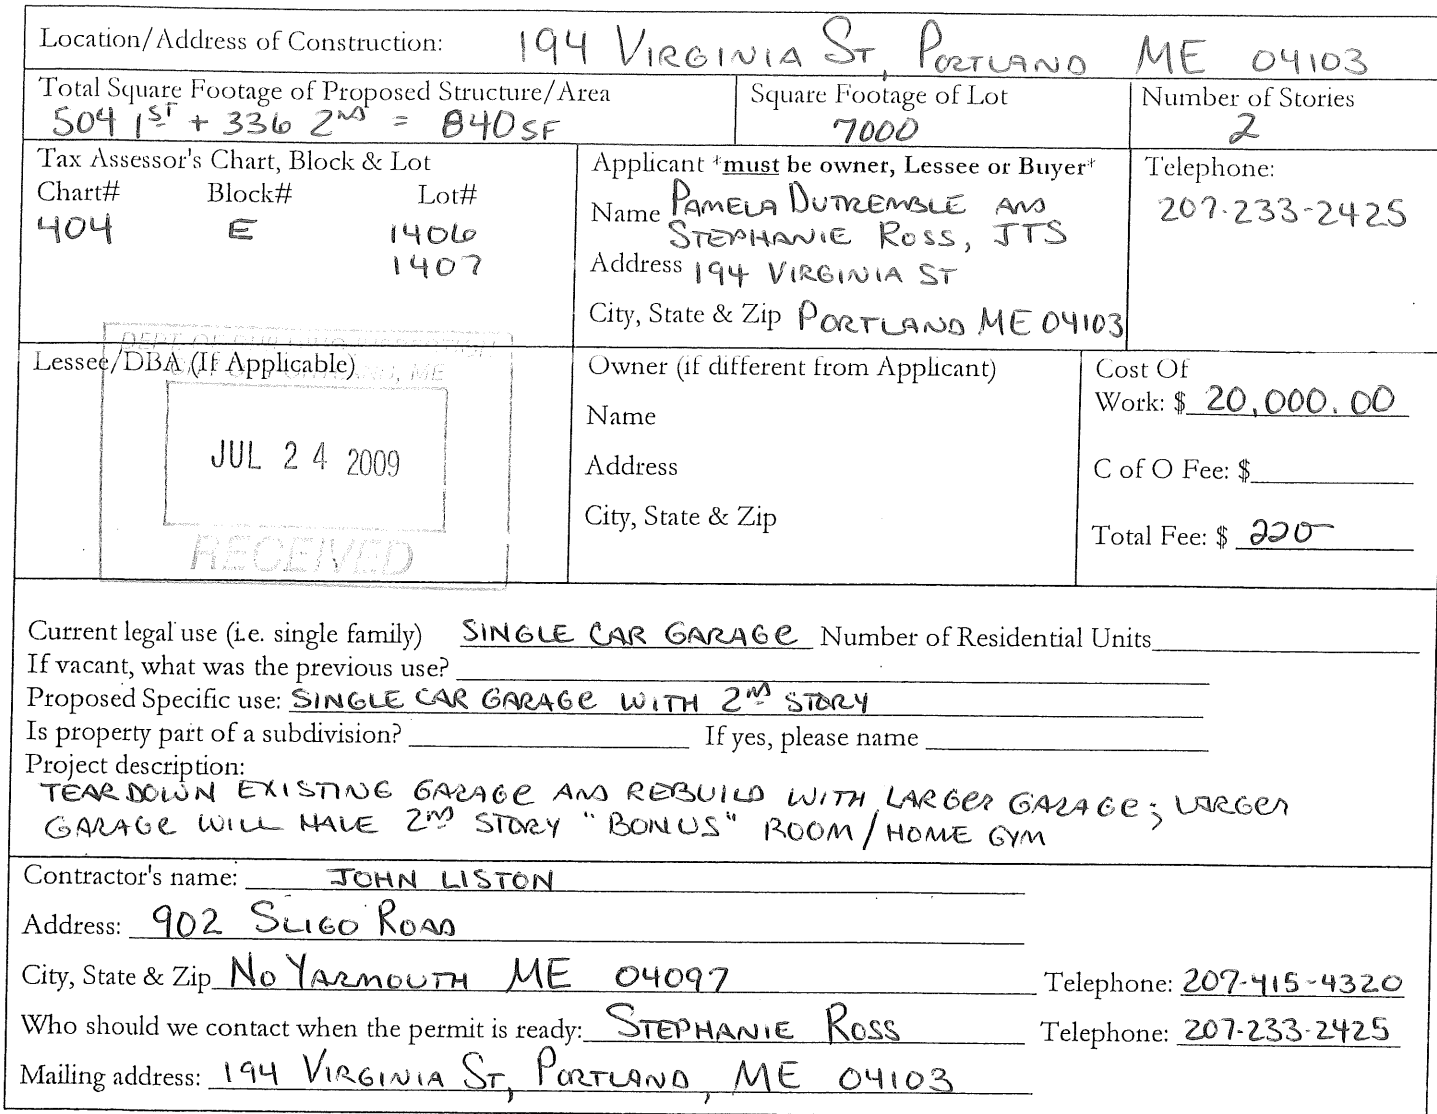 Location/Address of Construction: 194 VIRGINIA ST, PORTLAND ME 04103
Total Square Footage of Proposed Structure/Area
504 1ST + 336 2ND = 840 SF
Square Footage of Lot
7000
Number of Stories
2
Tax Assessor's Chart, Block & Lot
Chart# Block# Lot#
404 E 1406
1407
Applicant *must be owner, Lessee or Buyer*
Name PAMELA DUTREMBLE AND
STEPHANIE ROSS, JTS
Address 194 VIRGINIA ST
City, State & Zip PORTLAND ME 04103
Telephone:
207-233-2425
Lessee/DBA (If Applicable)
DEPT. OF BUILDING INSPECTION
, ME
JUL 24 2009
RECEIVED
Owner (if different from Applicant)
Name
Address
City, State & Zip
Cost Of
Work: $ 20,000.00
C of O Fee: $
Total Fee: $ 220
Current legal use (i.e. single family) SINGLE CAR GARAGE Number of Residential Units
If vacant, what was the previous use?
Proposed Specific use: SINGLE CAR GARAGE WITH 2ND STORY
Is property part of a subdivision? If yes, please name
Project description:
TEAR DOWN EXISTING GARAGE AND REBUILD WITH LARGER GARAGE; LARGER
GARAGE WILL HAVE 2ND STORY "BONUS" ROOM/HOME GYM
Contractor's name: JOHN LISTON
Address: 902 SLIGO ROAD
City, State & Zip NO YARMOUTH ME 04097 Telephone: 207-415-4320
Who should we contact when the permit is ready: STEPHANIE ROSS Telephone: 207-233-2425
Mailing address: 194 VIRGINIA ST, PORTLAND, ME 04103